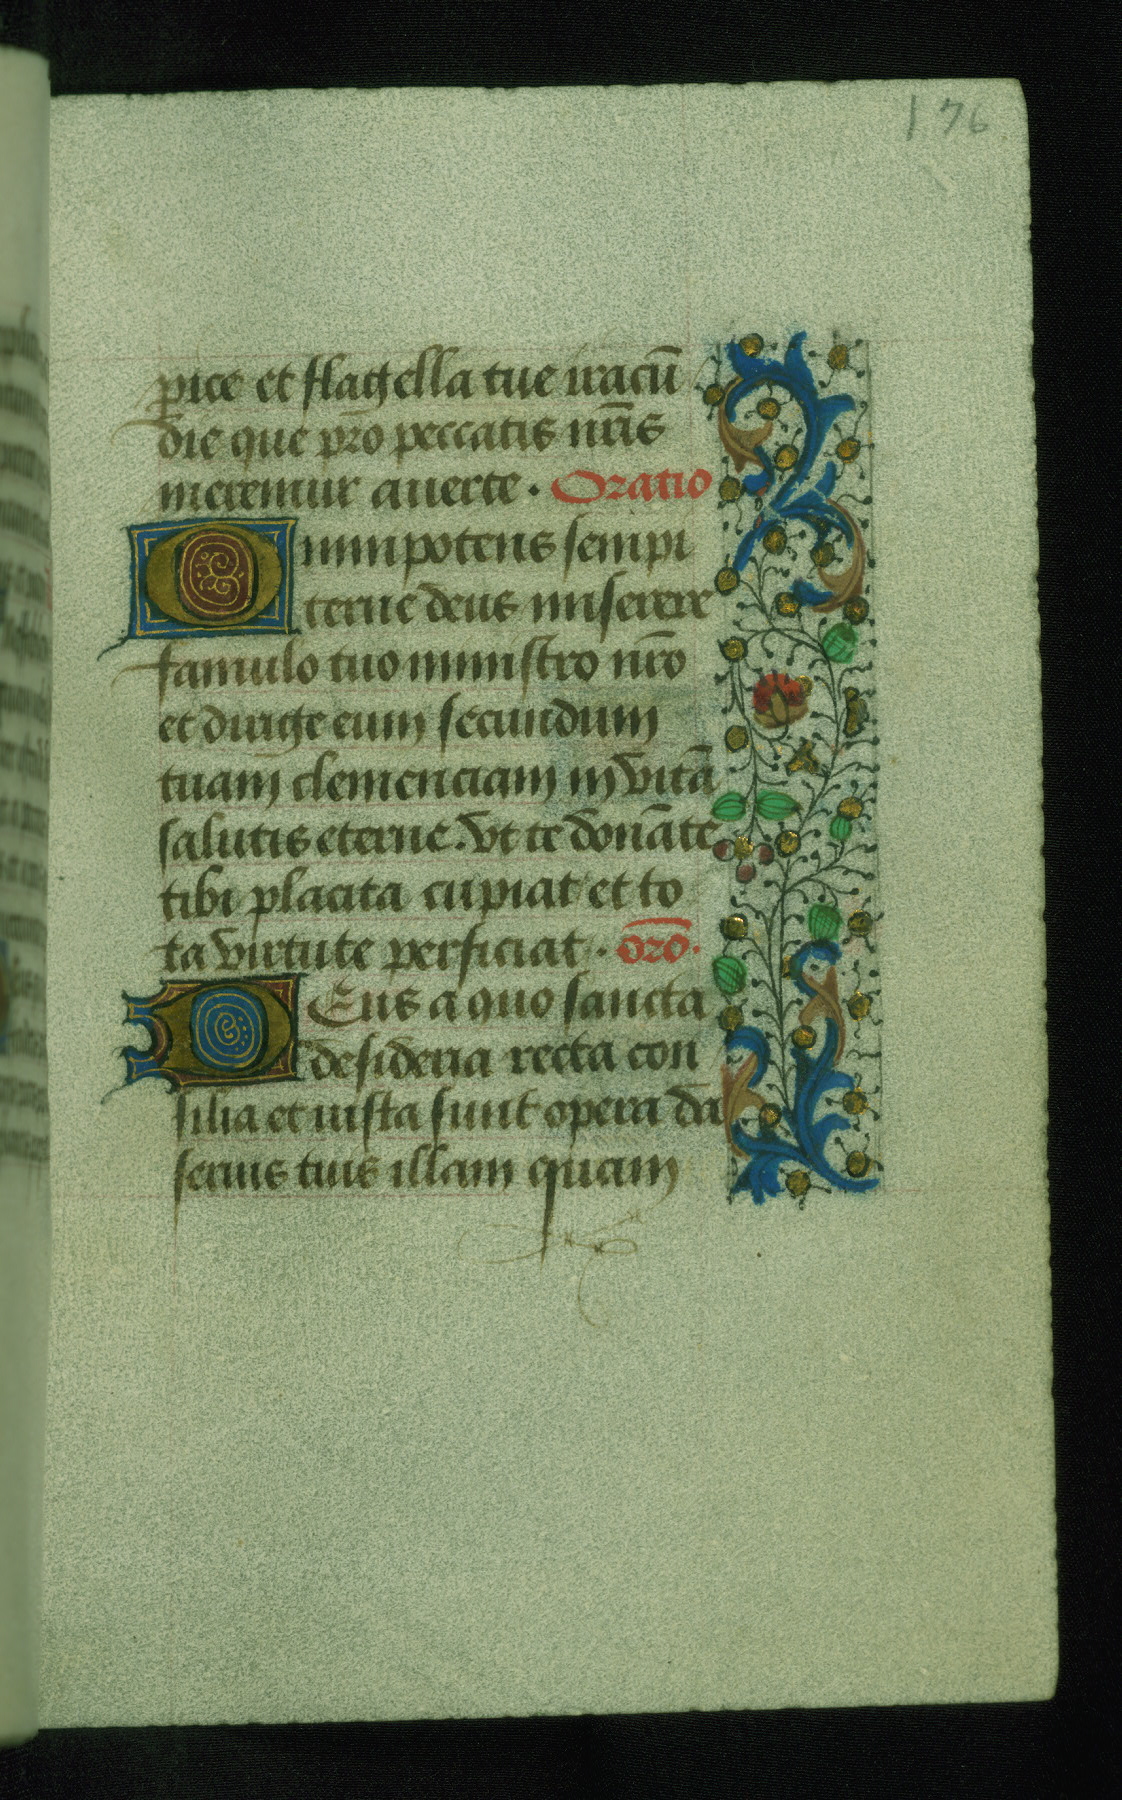 176
pice et flagella tue iracū
die que pro peccatis nr̄is
meremur auerte. Oratio
Omnipotens sempi
terne deus miserere
famulo tuo ministro nr̄o
et dirige eum secundum
tuam clemenciam in vitā
salutis eterne. Vt te donāte
tibi placita cupiat et to
ta virtute perficiat. or̄o.
Deus a quo sancta
desideria recta con
silia et iusta sunt opera da
seruis tuis illam quam